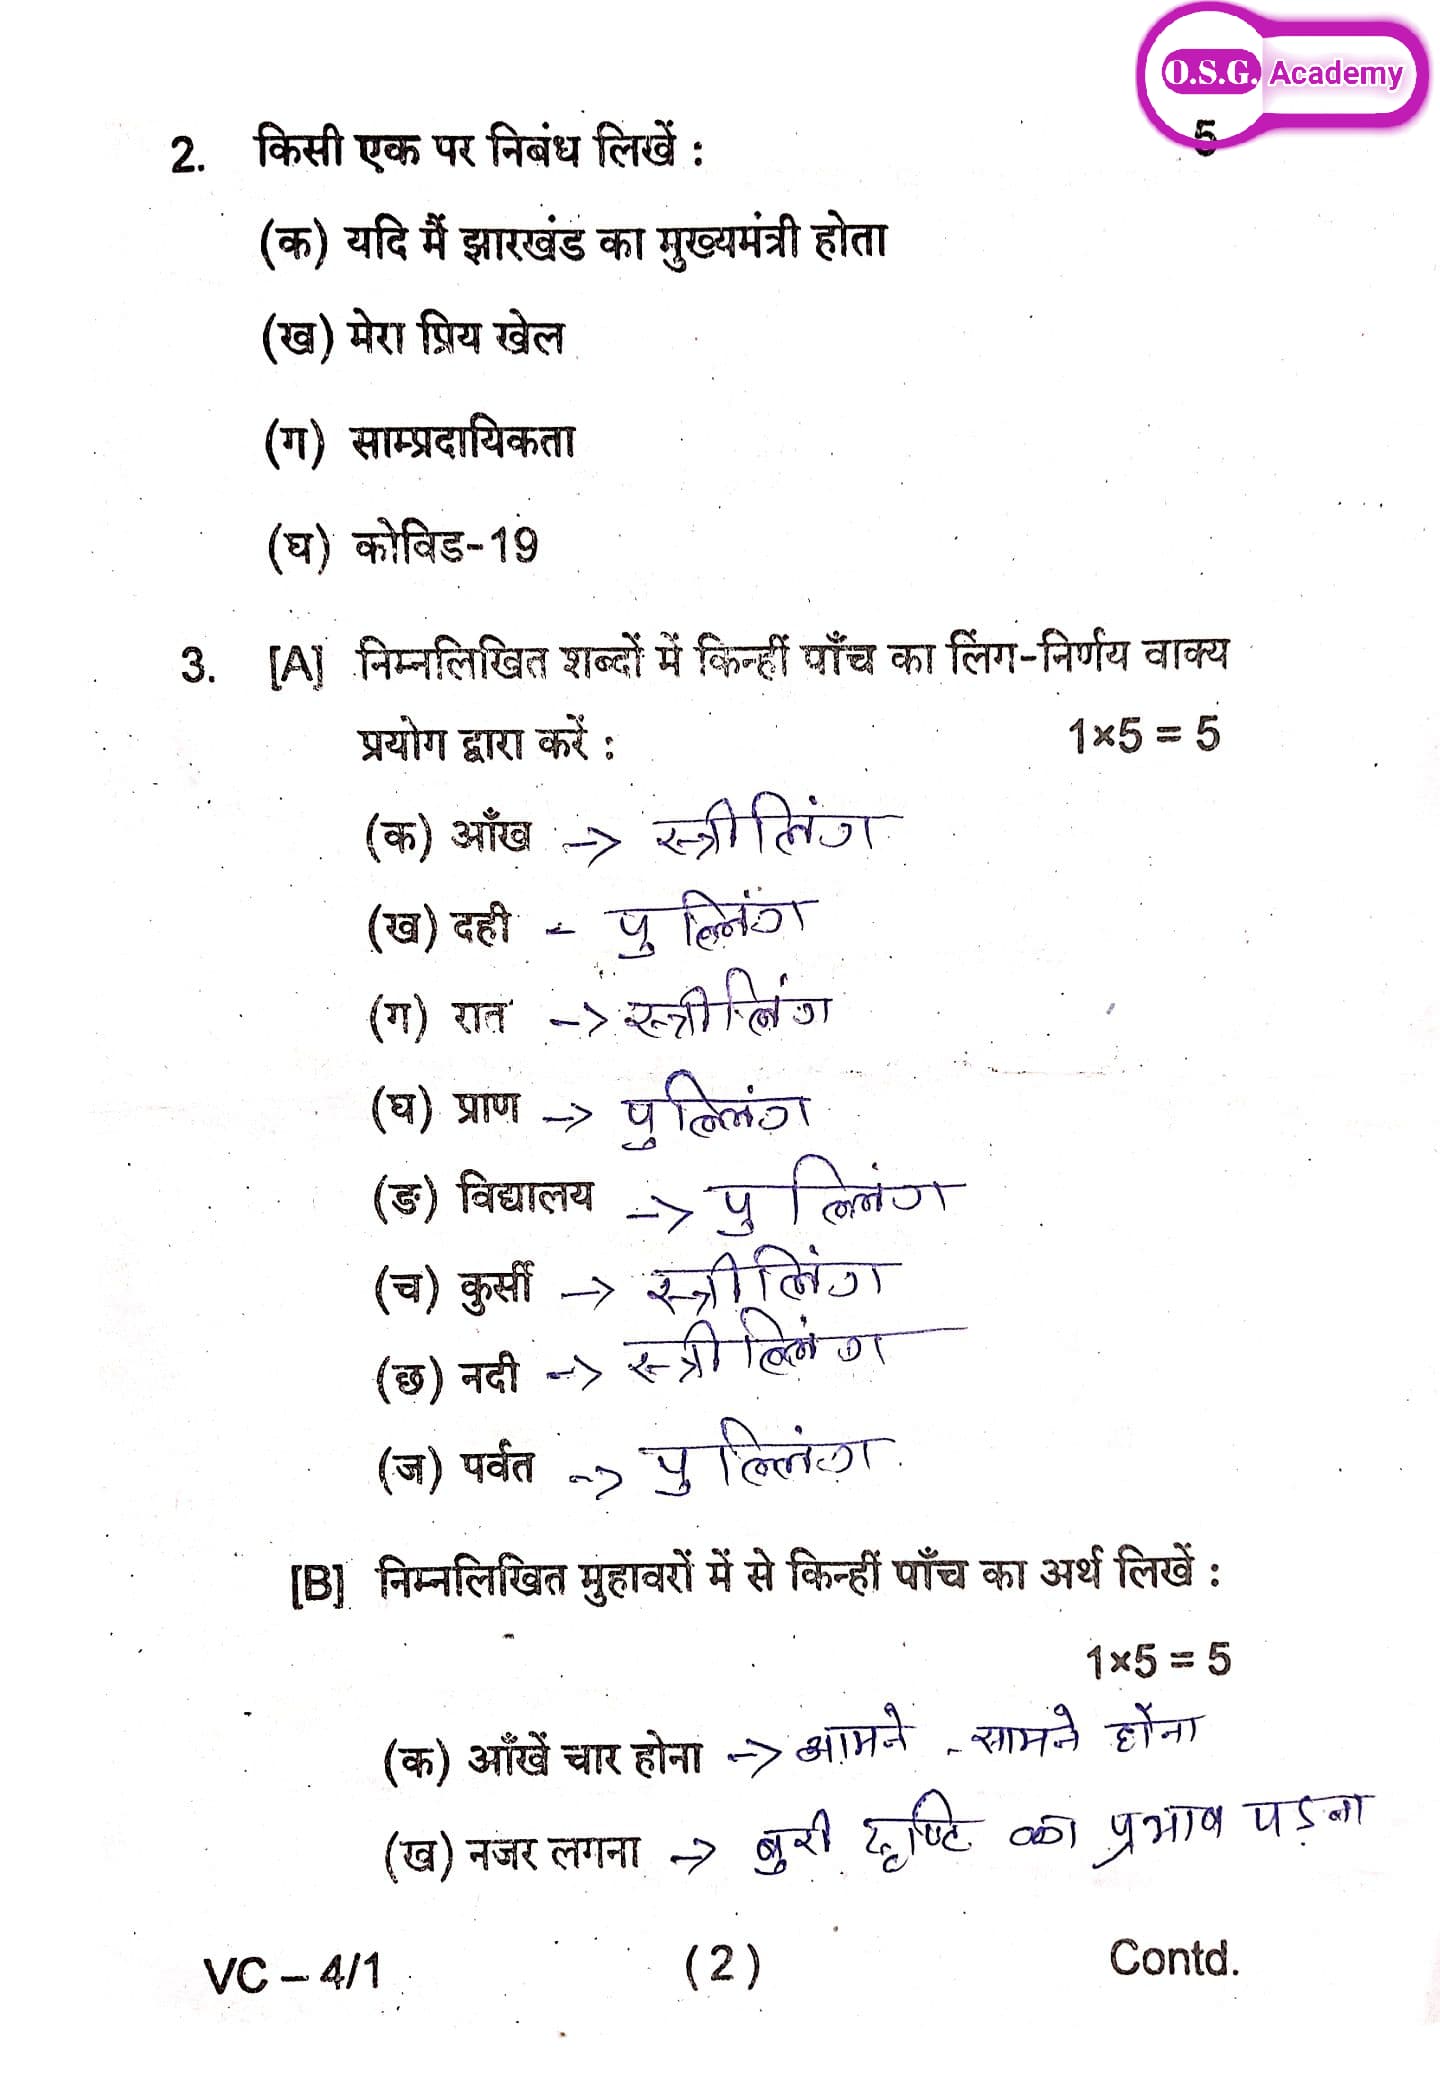 O.S.G. Academy
2. किसी एक पर निबंध लिखें : 5
(क) यदि मैं झारखंड का मुख्यमंत्री होता
(ख) मेरा प्रिय खेल
(ग) साम्प्रदायिकता
(घ) कोविड-19
3. [A] निम्नलिखित शब्दों में किन्हीं पाँच का लिंग-निर्णय वाक्य
प्रयोग द्वारा करें : 1×5 = 5
(क) आँख -> स्त्रीलिंग
(ख) दही - पुल्लिंग
(ग) रात -> स्त्रीलिंग
(घ) प्राण -> पुल्लिंग
(ङ) विद्यालय -> पुल्लिंग
(च) कुर्सी -> स्त्रीलिंग
(छ) नदी -> स्त्रीलिंग
(ज) पर्वत -> पुल्लिंग
[B] निम्नलिखित मुहावरों में से किन्हीं पाँच का अर्थ लिखें :
1×5 = 5
(क) आँखें चार होना -> आमने - सामने होना
(ख) नजर लगना -> बुरी दृष्टि का प्रभाव पड़ना
VC – 4/1 (2) Contd.